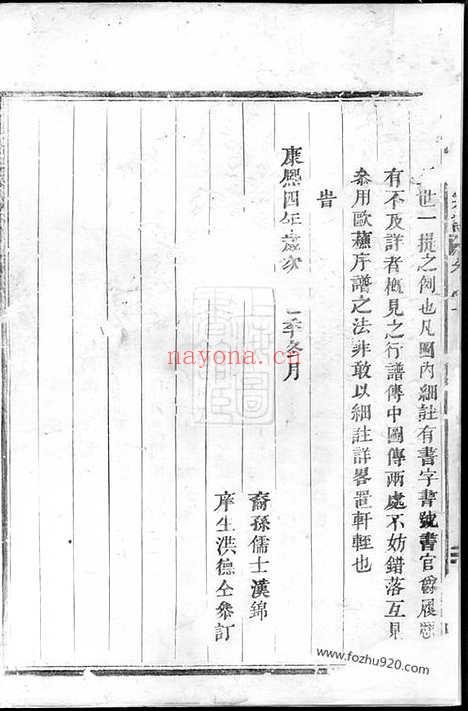 世一提之例也凡圖內細註有書字書號書官爵履歷
有不及詳者概見之行譜傳中圖傳兩處不妨錯落互見
叅用歐蘇序譜之法非敢以細註詳畧置軒輊也
旹
康熙四年歲次 季冬月
裔孫儒士漢錦
庠生洪德仝叅訂
nayona.cn
www.fozhu920.com